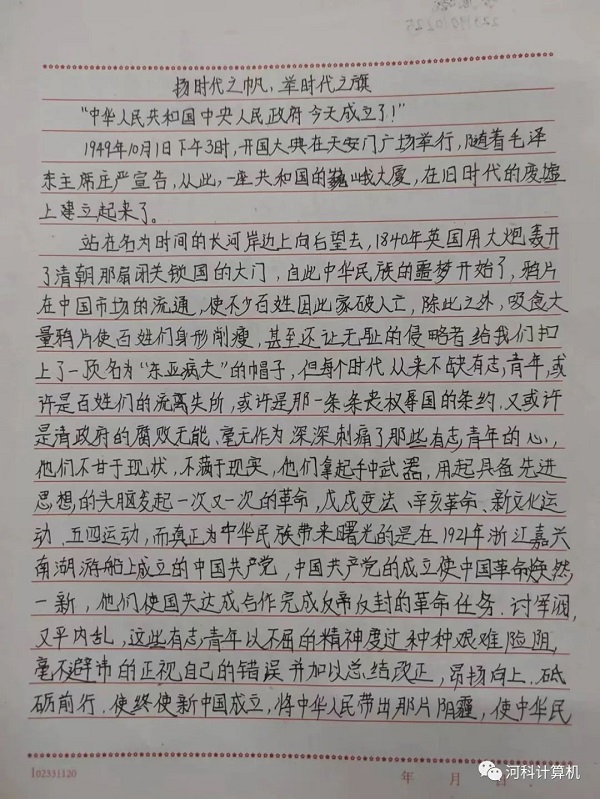 扬时代之帆，举时代之旗
“中华人民共和国中央人民政府今天成立了！”
1949年10月1日下午3时，开国大典在天安门广场举行，随着毛泽
东主席庄严宣告，从此，一座共和国的巍峨大厦，在旧时代的废墟
上建立起来了。
站在名为时间的长河岸边上向后望去，1840年英国用大炮轰开
了清朝那扇闭关锁国的大门，自此中华民族的噩梦开始了，鸦片
在中国市场的流通，使不少百姓因此家破人亡，除此之外，吸食大
量鸦片使百姓们身形削瘦，甚至还让无耻的侵略者给我们扣
上了一顶名为“东亚病夫”的帽子，但每个时代从来不缺有志青年，或
许是百姓们的流离失所，或许是那一条条丧权辱国的条约，又或许
是清政府的腐败无能、毫无作为深深刺痛了那些有志青年的心，
他们不甘于现状，不满于现实，他们拿起手中武器，用起具备先进
思想的头脑发起一次又一次的革命，戊戌变法、辛亥革命、新文化运
动、五四运动，而真正为中华民族带来曙光的是在1921年浙江嘉兴
南湖游船上成立的中国共产党，中国共产党的成立使中国革命焕然
一新，他们使国共达成合作完成反帝反封的革命任务，讨军阀，
又平内乱，这些有志青年以不屈的精神度过种种艰难险阻，
毫不避讳的正视自己的错误并加以总结改正，昂扬向上、砥
砺前行，使终使新中国成立，将中华人民带出那片阴霾，使中华民
102331120
年 月
河科计算机